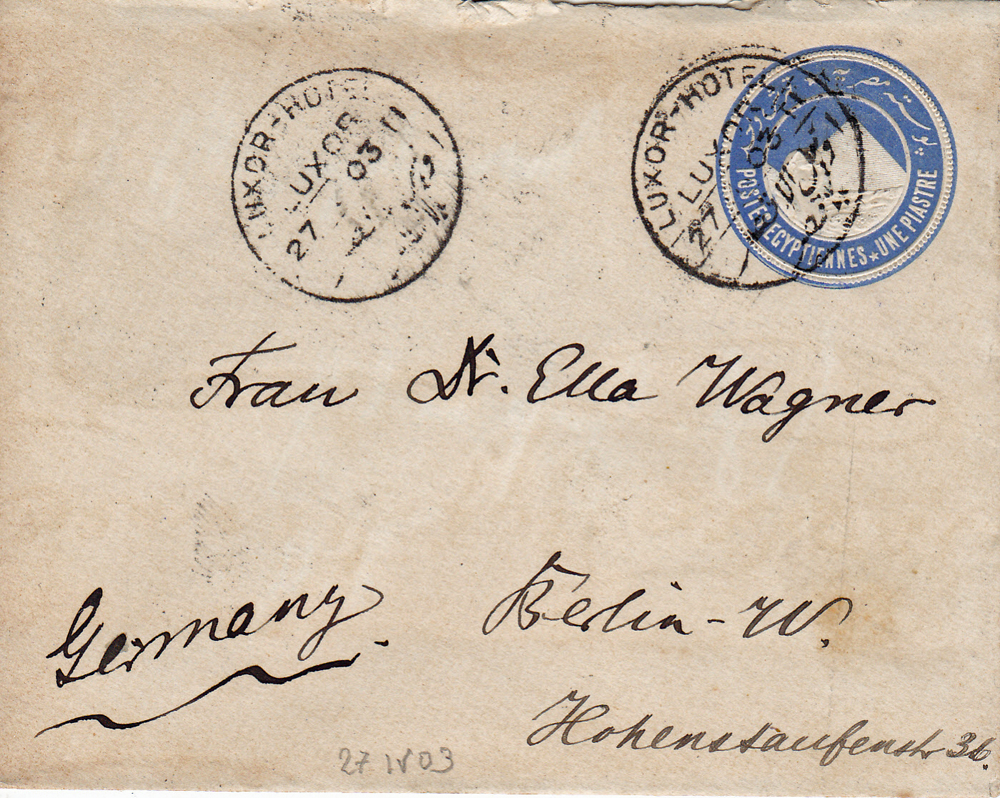 LUXOR-HOTEL
LUXOR
27 03
LUXOR-HOTEL
LUXOR
27 03
POSTES EGYPTIENNES ★ UNE PIASTRE
Frau Dr. Ella Wagner
Germany.
Berlin-W.
Hohenstaufenstr 36.
27 IV 03